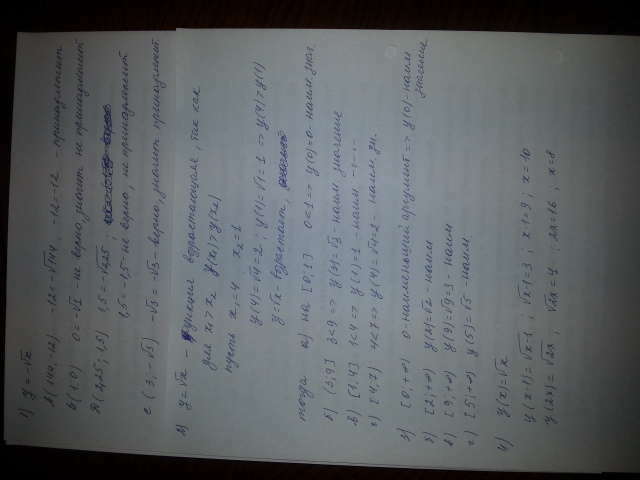 1) y = -√x
A (144, -12) -12 = -√144, -12 = -12 - принадлежит
B (1; 0) 0 = -√1 - не верно, значит не принадлежит
D (2,25; 1,5) 1,5 = -√2,25
1,5 = -1,5 - не верно, не принадлежит
C (3, -√3) -√3 = -√3 - верно, значит принадлежит
2) y = √x - функция возрастающая, так как
для x₁ > x₂ y(x₁) > y(x₂)
пусть x₁ = 4 x₂ = 1
y(4) = √4 = 2 y(1) = √1 = 1 => y(4) > y(1)
y = √x - возрастает,
тогда а) на [0; 1] 0 < 1 => y(0) = 0 - наим. знач.
б) (3, 9] 3 < 9 => y(3) = √3 - наим. значение
в) [1, 4] 1 < 4 => y(1) = 1 - наим
г) [4, 7) 4 < 7 => y(4) = √4 = 2 - наим. зн.
3) [0; +∞) 0 - наименьший аргумент => y(0) - наим значение
б) [2; +∞) y(2) = √2 - наим
в) [9; +∞) y(9) = √9 = 3 - наим
г) [5; +∞) y(5) = √5 - наим
4) y(x) = √x
y(x-1) = √x-1 ; √x-1 = 3 ; x-1 = 9 ; x = 10
y(2x) = √2x ; √2x = 4 ; 2x = 16 ; x = 8